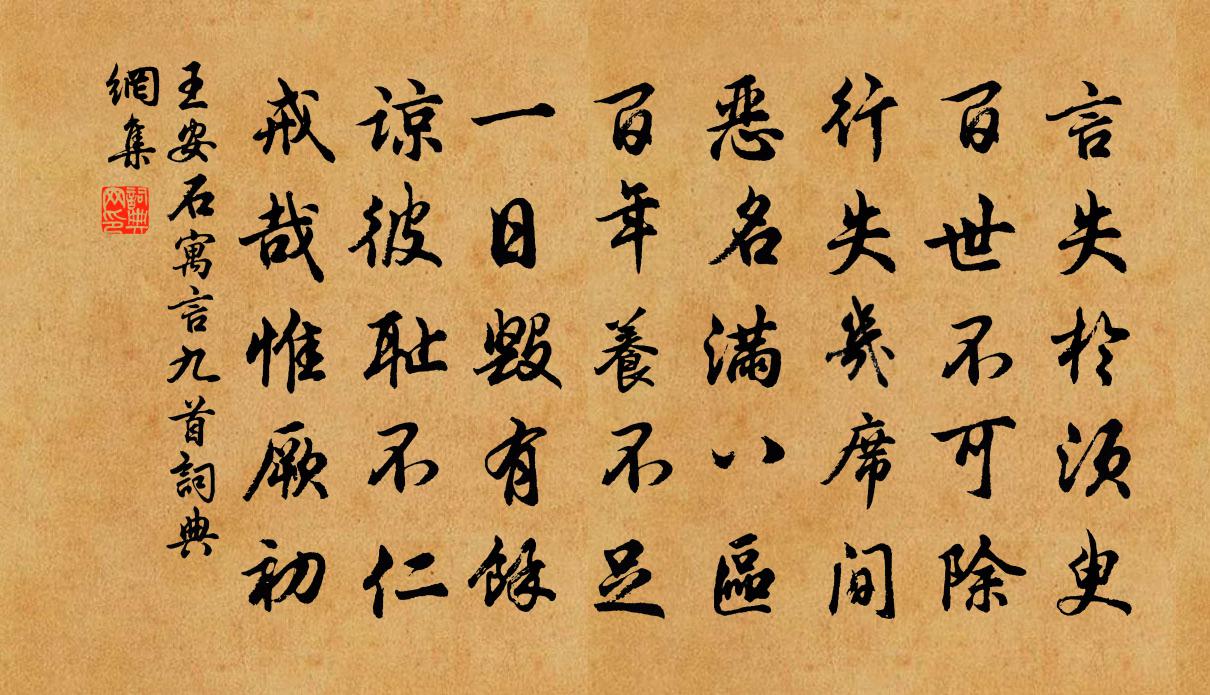 言失於須臾
百世不可除
行失幾席間
惡名滿八區
百年養不足
一日毀有餘
諒彼恥不仁
戒哉惟厥初
王安石寓言九首詞典
網集
詞典
网印